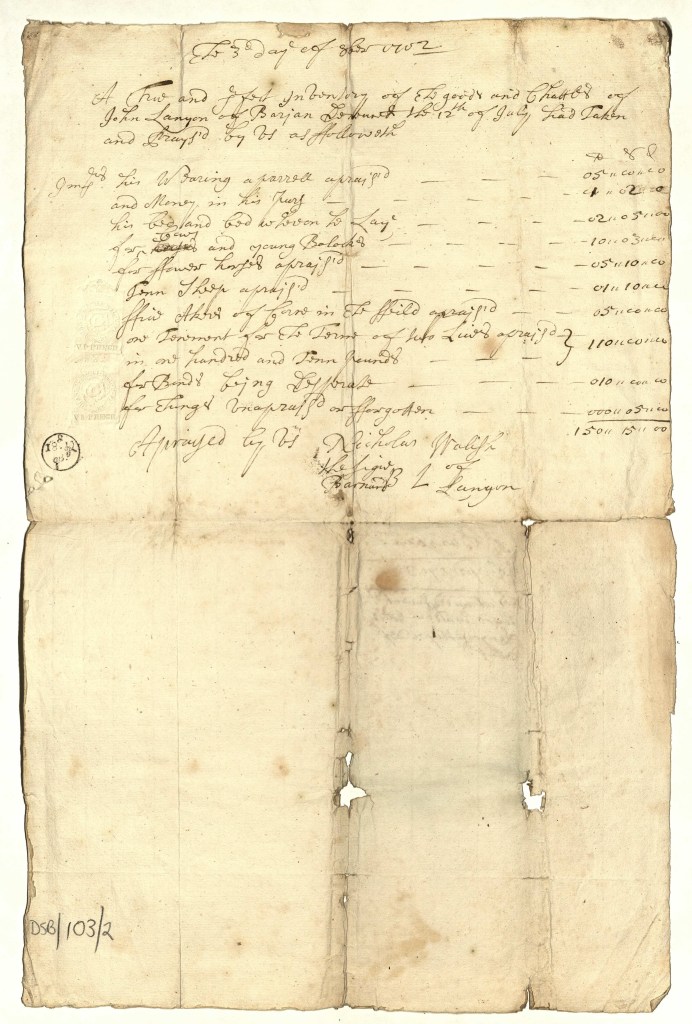 The 3d day of 8ber 1702
A True and pfect Inventory of the goods and Chattles of
John Lanyon of Barjan Deceased the 12th of July had Taken
and Praysd by Us as ffolloweth
£ S d
Impris his Wearing aparrell apraisd — — — 05 " 00 " 00
and Money in his Purs — — — — 01 " 02 " 00
his bed and bed wheron he Lay — — — 02 " 05 " 00
for Cows and young Bolocks — — — 10 " 03 " 00
for ffower horses apraisd — — — 05 " 10 " 00
Tenn Sheep apraisd — — — 01 " 10 " 00
ffive Akers of Corne in the ffeild apraisd — — 05 " 00 " 00
one Tenement for the Terme of two Lives apraisd }
in one hundred and Tenn pounds — — — } 110 " 00 " 00
for Bonds being Desperate — — — 010 " 00 " 00
for things unapraisd or fforgotten — — 000 " 05 " 00
150 " 15 " 00
Apraised by Us Nicholas Walish
the Signe of
Barnard L Lanyon
DSB/103/2